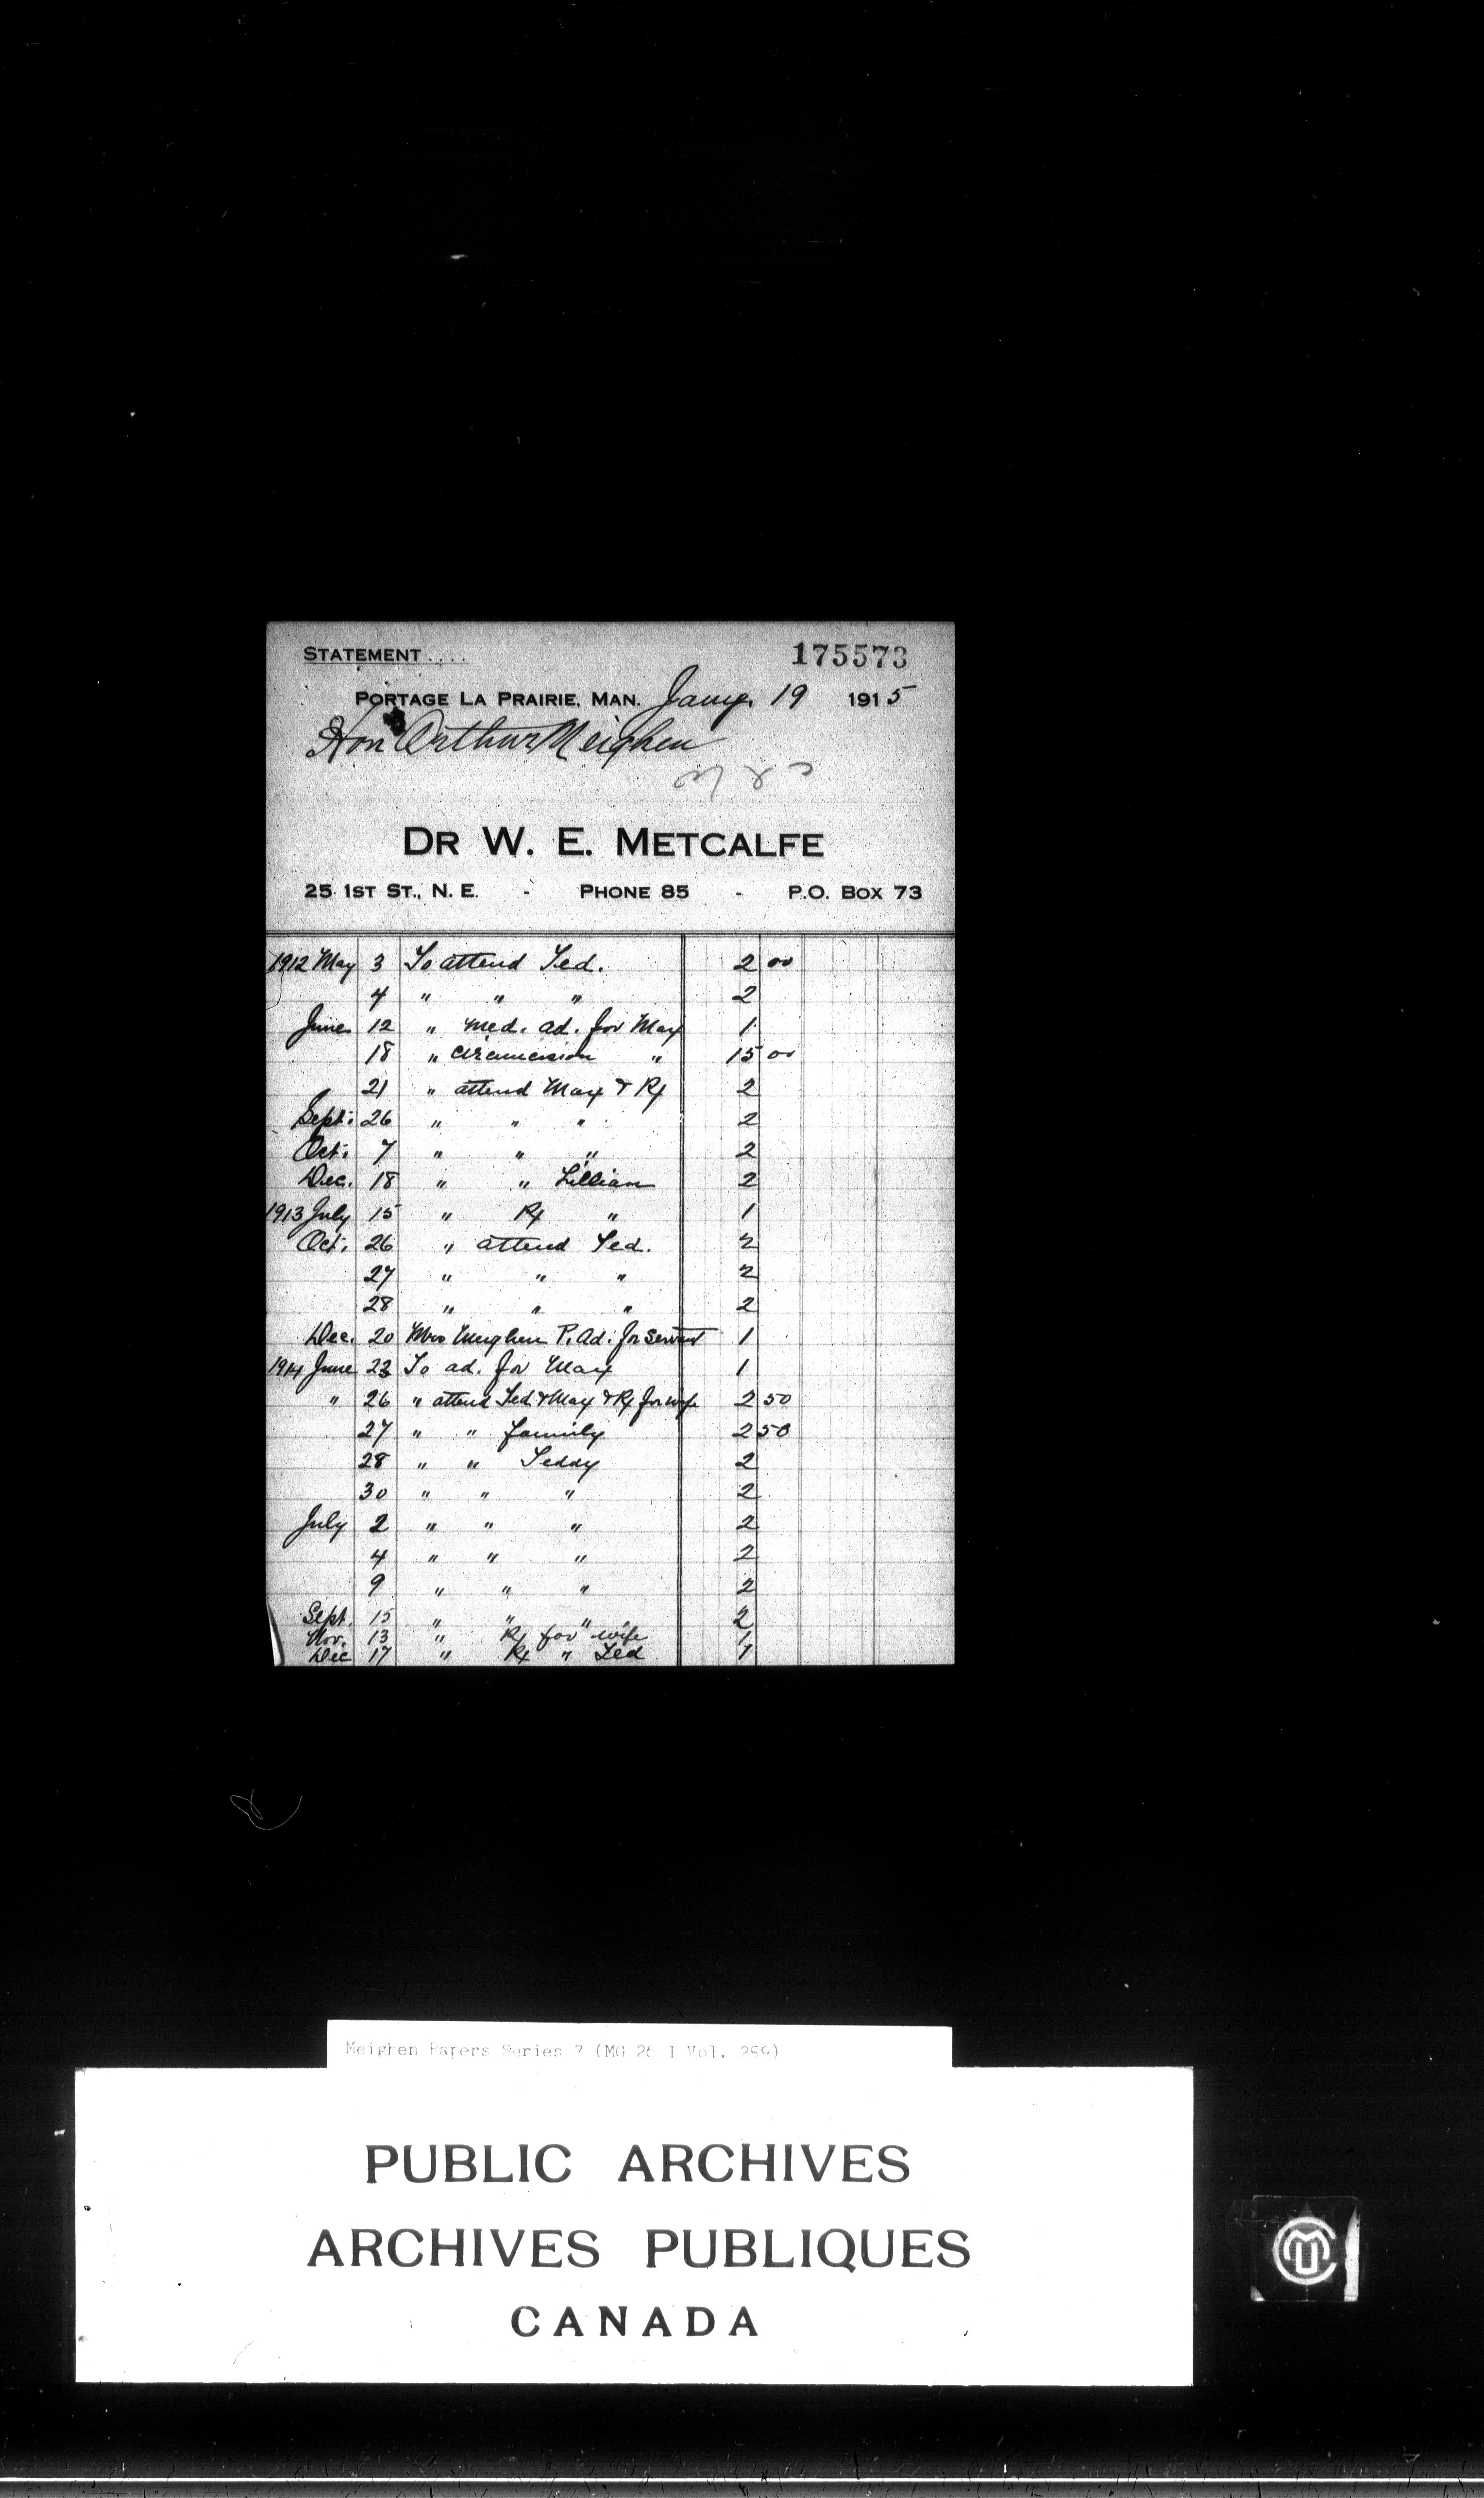 STATEMENT.... 175573
PORTAGE LA PRAIRIE, MAN. Jany. 19 1915
Hon Arthur Meighen
DR W. E. METCALFE
25 1ST ST., N. E. - PHONE 85 - P.O. BOX 73
1912 May 3 To attend Ted. 2 00
4 " " " 2
June 12 " med. ad. for Max 1
18 " circumcision " 15 00
21 " attend Max & Rx 2
Sept. 26 " " " 2
Oct. 7 " " " 2
Dec. 18 " " Lillian 2
1913 July 15 " Rx " 1
Oct. 26 " attend Ted. 2
27 " " " 2
28 " " " 2
Dec. 20 Mrs Meighen P. Ad. for servant 1
1914 June 23 To ad. for Max 1
" 26 " attend Ted & Max & Rx for wife 2 50
27 " " family 2 50
28 " " Teddy 2
30 " " " 2
July 2 " " " 2
4 " " " 2
9 " " " 2
Sept. 15 " " " 2
Nov. 13 " Rx for wife 1
Dec 17 " Rx " Ted 1
Meighen Papers Series 7 (MG 26 I Vol. 259)
PUBLIC ARCHIVES
ARCHIVES PUBLIQUES
CANADA